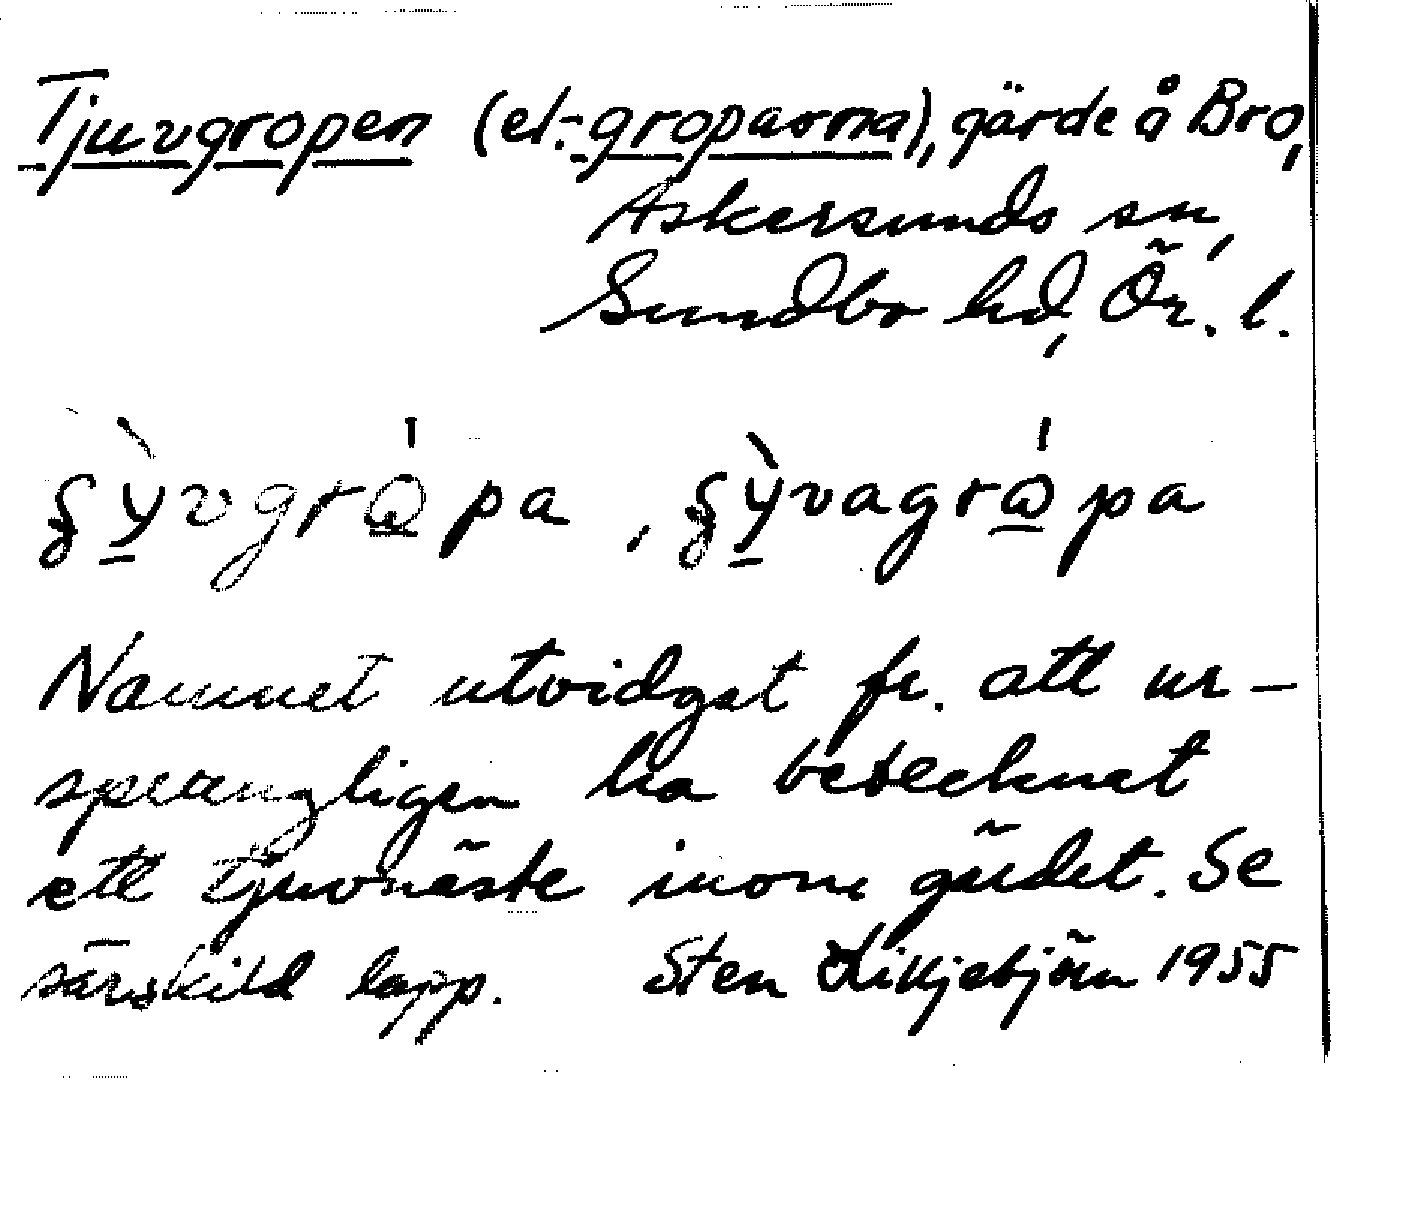 Tjuvgropen (el.-groparna), gärde å Bro,
Askersunds sn,
Sundbo hd, Ör. l.
Namnet utvidgat fr. att ur-
sprungligen ha betecknat
ett tjuvnäste inom gärdet. Se
särskild lapp. Sten Liljebjörn 1955